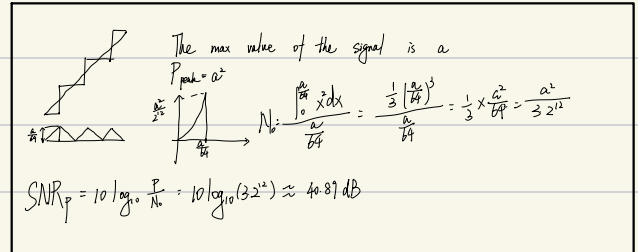 The max value of the signal is a
P_peak = a²
a²/2¹²
a/64
a/64
N₀ = ∫₀^(a/64) x²dx / (a/64) = (1/3 (a/64)³) / (a/64) = 1/3 × a²/64² = a²/(3 2¹²)
SNR_p = 10 log₁₀ P/N₀ = 10 log₁₀(3 2¹²) ≈ 40.89 dB